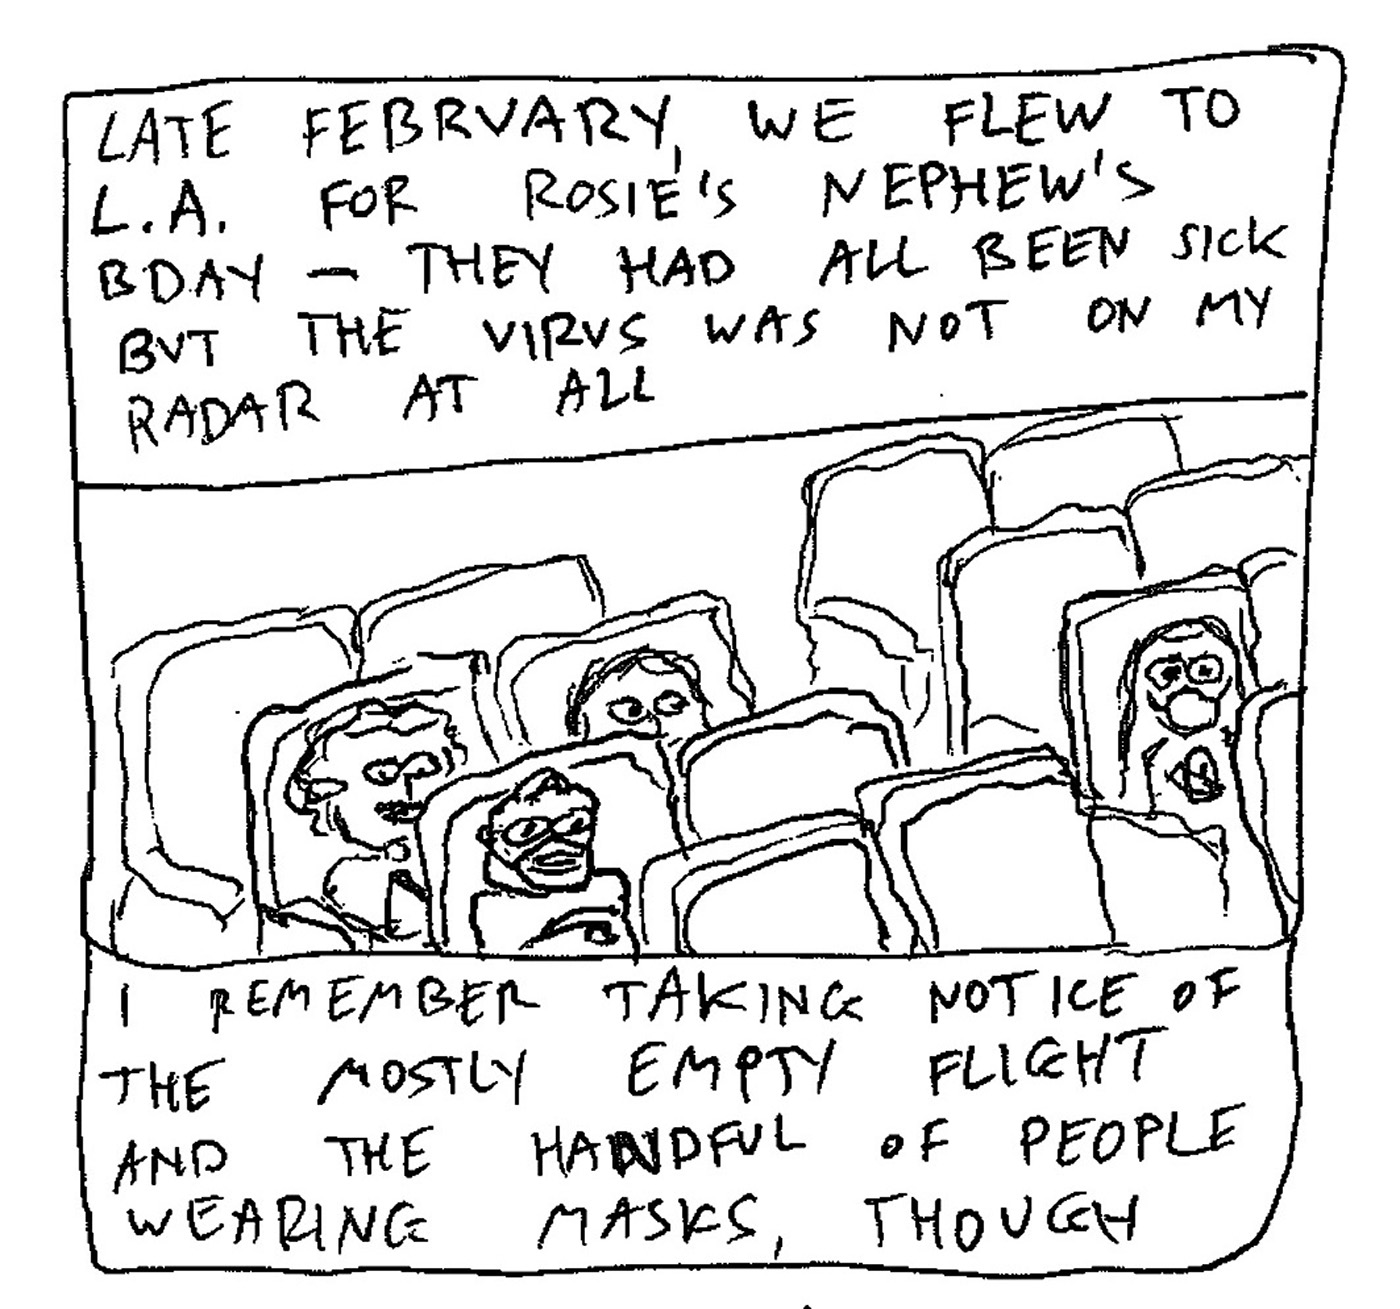 LATE FEBRUARY, WE FLEW TO
L.A. FOR ROSIE'S NEPHEW'S
BDAY — THEY HAD ALL BEEN SICK
BUT THE VIRUS WAS NOT ON MY
RADAR AT ALL
I REMEMBER TAKING NOTICE OF
THE MOSTLY EMPTY FLIGHT
AND THE HANDFUL OF PEOPLE
WEARING MASKS, THOUGH